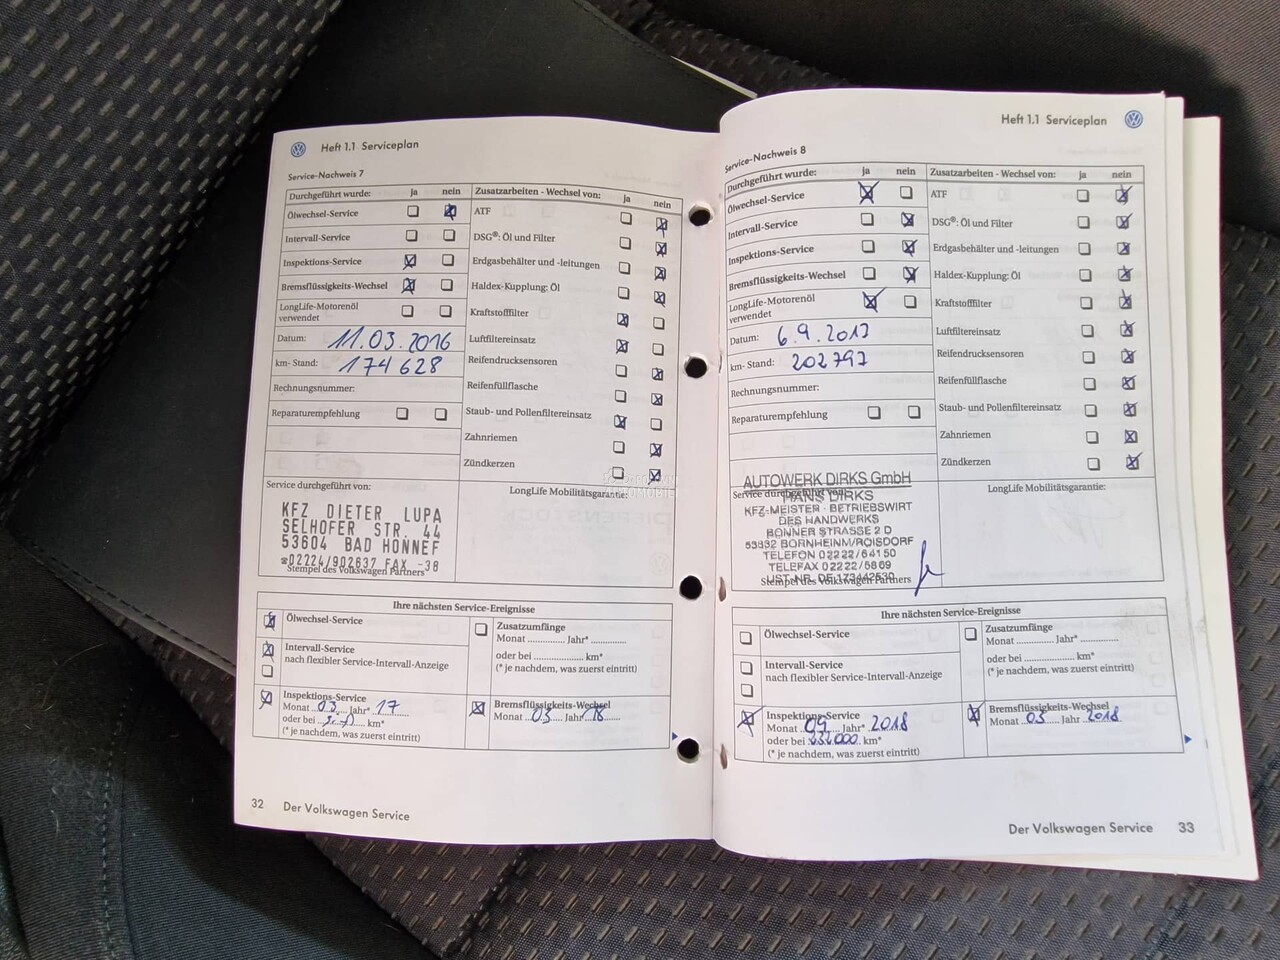 Heft 1.1 Serviceplan
Service-Nachweis 7
Durchgeführt wurde: ja nein
Ölwechsel-Service
Intervall-Service
Inspektions-Service
Bremsflüssigkeits-Wechsel
LongLife-Motorenöl
verwendet
Datum: 11.03.2016
km- Stand: 174 628
Rechnungsnummer:
Reparaturempfehlung
Zusatzarbeiten - Wechsel von: ja nein
ATF
DSG®: Öl und Filter
Erdgasbehälter und -leitungen
Haldex-Kupplung: Öl
Kraftstofffilter
Luftfiltereinsatz
Reifendrucksensoren
Reifenfüllflasche
Staub- und Pollenfiltereinsatz
Zahnriemen
Zündkerzen
Service durchgeführt von:
KFZ DIETER LUPA
SELHOFER STR. 44
53604 BAD HONNEF
☎02224/902637 FAX -38
Stempel des Volkswagen Partners
LongLife Mobilitätsgarantie:
Ihre nächsten Service-Ereignisse
Ölwechsel-Service
Intervall-Service
nach flexibler Service-Intervall-Anzeige
Inspektions-Service
Monat 03 Jahr* 17
oder bei ............ km*
(* je nachdem, was zuerst eintritt)
Zusatzumfänge
Monat ............ Jahr* ............
oder bei ................ km*
(* je nachdem, was zuerst eintritt)
Bremsflüssigkeits-Wechsel
Monat 03 Jahr 18
32 Der Volkswagen Service
Heft 1.1 Serviceplan
Service-Nachweis 8
Durchgeführt wurde: ja nein
Ölwechsel-Service
Intervall-Service
Inspektions-Service
Bremsflüssigkeits-Wechsel
LongLife-Motorenöl
verwendet
Datum: 6.9.2017
km- Stand: 202797
Rechnungsnummer:
Reparaturempfehlung
Zusatzarbeiten - Wechsel von: ja nein
ATF
DSG®: Öl und Filter
Erdgasbehälter und -leitungen
Haldex-Kupplung: Öl
Kraftstofffilter
Luftfiltereinsatz
Reifendrucksensoren
Reifenfüllflasche
Staub- und Pollenfiltereinsatz
Zahnriemen
Zündkerzen
AUTOWERK DIRKS GmbH
Service durchgeführt von:
HANS DIRKS
KFZ-MEISTER · BETRIEBSWIRT
DES HANDWERKS
BONNER STRASSE 2 D
53332 BORNHEIM/ROISDORF
TELEFON 02222/64150
TELEFAX 02222/5869
UST-NR. DE 173442530
Stempel des Volkswagen Partners
LongLife Mobilitätsgarantie:
Ihre nächsten Service-Ereignisse
Ölwechsel-Service
Intervall-Service
nach flexibler Service-Intervall-Anzeige
Inspektions-Service
Monat 09 Jahr* 2018
oder bei 232000 km*
(* je nachdem, was zuerst eintritt)
Zusatzumfänge
Monat ............ Jahr* ............
oder bei ................ km*
(* je nachdem, was zuerst eintritt)
Bremsflüssigkeits-Wechsel
Monat 03 Jahr 2018
Der Volkswagen Service 33